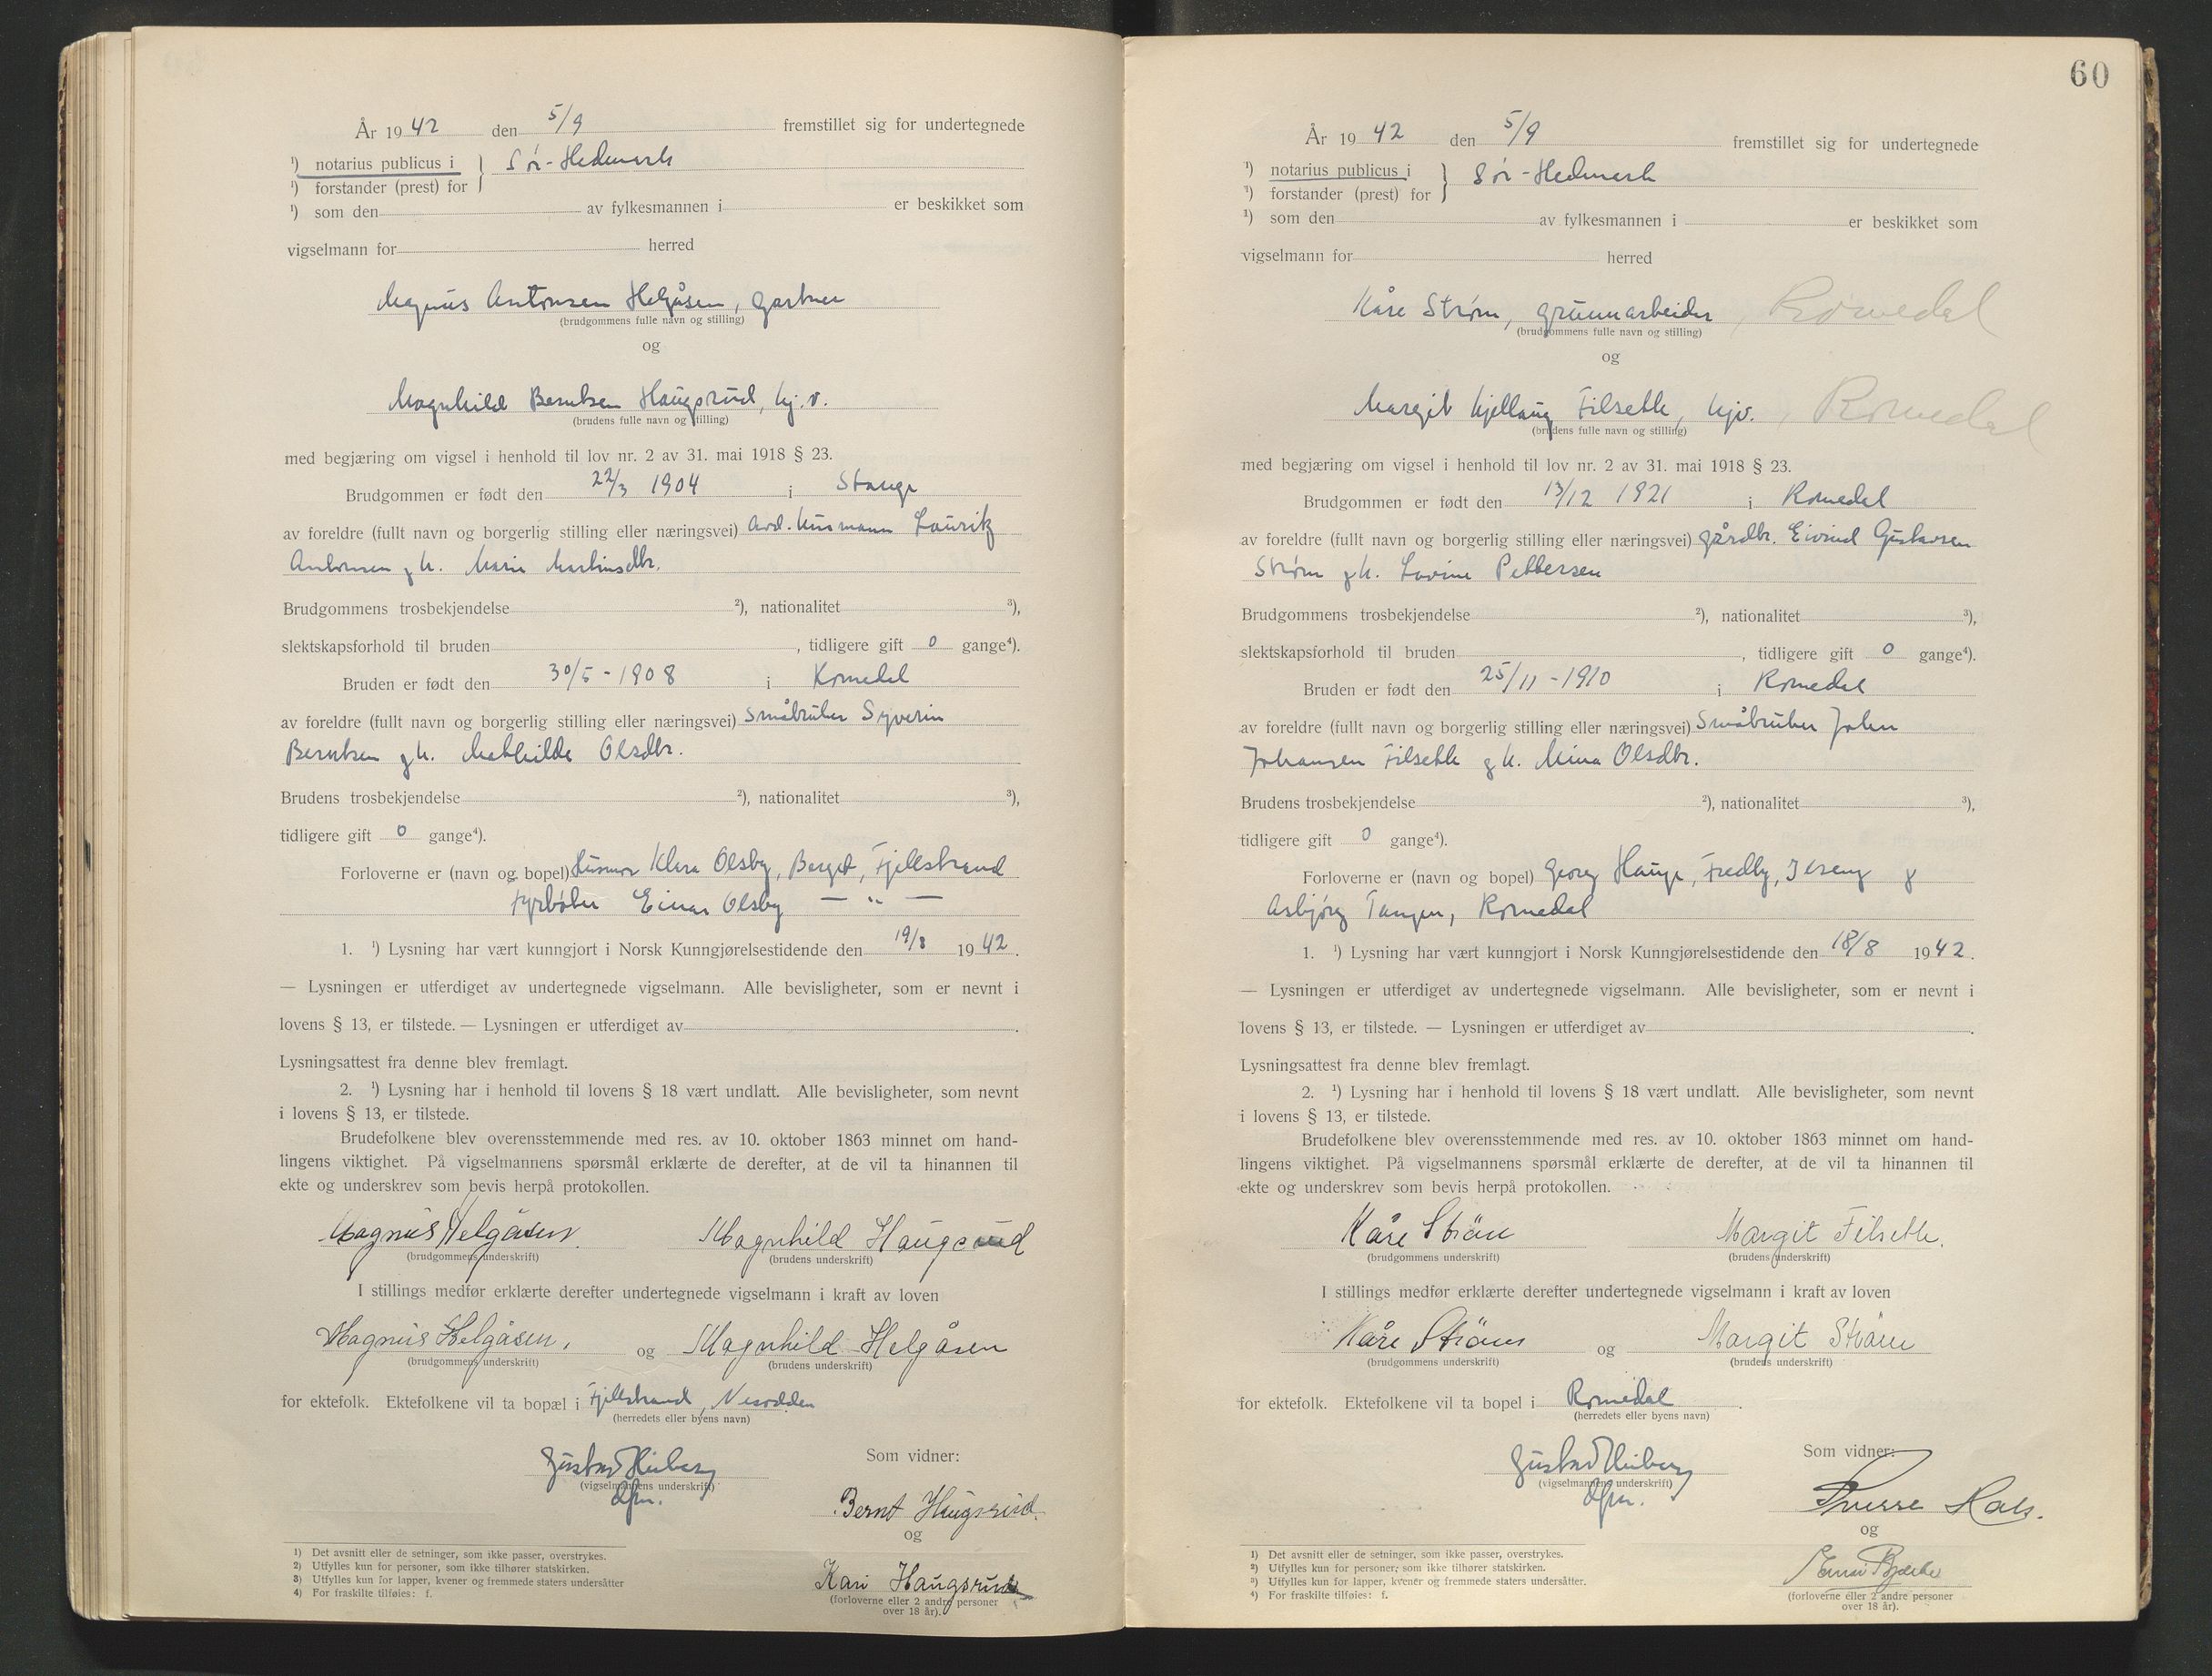 År 1942 den 5/9 fremstillet sig for undertegnede
¹) notarius publicus i } Sør-Hedmark
¹) forstander (prest) for
¹) som den av fylkesmannen i er beskikket som
vigselmann for herred
Magnus Antonsen Helgåsen, gartner
(brudgommens fulle navn og stilling)
og
Magnhild Berntsen Haugsrud, hj.v.
(brudens fulle navn og stilling)
med begjæring om vigsel i henhold til lov nr. 2 av 31. mai 1918 § 23.
Brudgommen er født den 22/3 1904 i Stange
av foreldre (fullt navn og borgerlig stilling eller næringsvei) avd. husmann Lauritz
Antonsen g h. Marie Martinsdtr.
Brudgommens trosbekjendelse ²), nationalitet ³),
slektskapsforhold til bruden , tidligere gift 0 gange⁴).
Bruden er født den 30/5 - 1908 i Romedal
av foreldre (fullt navn og borgerlig stilling eller næringsvei) Småbruker Syverin
Berntsen g h. Mathilde Olsdtr.
Brudens trosbekjendelse ²), nationalitet ³),
tidligere gift 0 gange⁴).
Forloverne er (navn og bopel) Husmor Klara Olsby, Berget, Fjellstrand
Fyrbøter Einar Olsby — " —
1. ¹) Lysning har vært kunngjort i Norsk Kunngjørelsestidende den 19/8 1942.
— Lysningen er utferdiget av undertegnede vigselmann. Alle bevisligheter, som er nevnt i
lovens § 13, er tilstede. — Lysningen er utferdiget av .
Lysningsattest fra denne blev fremlagt.
2. ¹) Lysning har i henhold til lovens § 18 vært undlatt. Alle bevisligheter, som nevnt
i lovens § 13, er tilstede.
Brudefolkene blev overensstemmende med res. av 10. oktober 1863 minnet om hand-
lingens viktighet. På vigselmannens spørsmål erklærte de derefter, at de vil ta hinannen til
ekte og underskrev som bevis herpå protokollen.
Magnus Helgåsen Magnhild Haugsrud
(brudgommens underskrift) (brudens underskrift)
I stillings medfør erklærte derefter undertegnede vigselmann i kraft av loven
Magnus Helgåsen. og Magnhild Helgåsen
(brudgommens underskrift) (brudens underskrift)
for ektefolk. Ektefolkene vil ta bopæl i Fjellstrand, Nesodden
(herredets eller byens navn)
Gustav Heiberg Som vidner:
(vigselmannens underskrift)
dfm.
Bernt Haugsrud.
og
Kari Haugsrud
(forloverne eller 2 andre personer
over 18 år).
1) Det avsnitt eller de setninger, som ikke passer, overstrykes.
2) Utfylles kun for personer, som ikke tilhører statskirken.
3) Utfylles kun for lapper, kvener og fremmede staters undersåtter
4) For fraskilte tilføies: f.
60
År 1942 den 5/9 fremstillet sig for undertegnede
¹) notarius publicus i } Sør-Hedmark
¹) forstander (prest) for
¹) som den av fylkesmannen i er beskikket som
vigselmann for herred
Kåre Strøm, grunnarbeider, Romedal
(brudgommens fulle navn og stilling)
og
Margit Kjellaug Filseth, hjv., Romedal
(brudens fulle navn og stilling)
med begjæring om vigsel i henhold til lov nr. 2 av 31. mai 1918 § 23.
Brudgommen er født den 13/12 1921 i Romedal
av foreldre (fullt navn og borgerlig stilling eller næringsvei) gårdbr. Eivind Gustavsen
Strøm g h. Lovine Pettersen
Brudgommens trosbekjendelse ²), nationalitet ³),
slektskapsforhold til bruden , tidligere gift 0 gange⁴).
Bruden er født den 25/11 - 1910 i Romedal
av foreldre (fullt navn og borgerlig stilling eller næringsvei) Småbruker Johan
Johansen Filseth g h. Mina Olsdtr.
Brudens trosbekjendelse ²), nationalitet ³),
tidligere gift 0 gange⁴).
Forloverne er (navn og bopel) Georg Hauge, Fredly, Ilseng g
Asbjørg Tangen, Romedal
1. ¹) Lysning har vært kunngjort i Norsk Kunngjørelsestidende den 18/8 1942.
— Lysningen er utferdiget av undertegnede vigselmann. Alle bevisligheter, som er nevnt i
lovens § 13, er tilstede. — Lysningen er utferdiget av .
Lysningsattest fra denne blev fremlagt.
2. ¹) Lysning har i henhold til lovens § 18 vært undlatt. Alle bevisligheter, som nevnt
i lovens § 13, er tilstede.
Brudefolkene blev overensstemmende med res. av 10. oktober 1863 minnet om hand-
lingens viktighet. På vigselmannens spørsmål erklærte de derefter, at de vil ta hinannen til
ekte og underskrev som bevis herpå protokollen.
Kåre Strøm Margit Filseth.
(brudgommens underskrift) (brudens underskrift)
I stillings medfør erklærte derefter undertegnede vigselmann i kraft av loven
Kåre Strøm og Margit Strøm
(brudgommens underskrift) (brudens underskrift)
for ektefolk. Ektefolkene vil ta bopel i Romedal.
(herredets eller byens navn)
Gustav Heiberg Som vidner:
(vigselmannens underskrift)
dfm.
Sverre Hals.
og
(forloverne eller 2 andre personer
over 18 år).
1) Det avsnitt eller de setninger, som ikke passer, overstrykes.
2) Utfylles kun for personer, som ikke tilhører statskirken.
3) Utfylles kun for lapper, kvener og fremmede staters undersåtter.
4) For fraskilte tilføies: f.